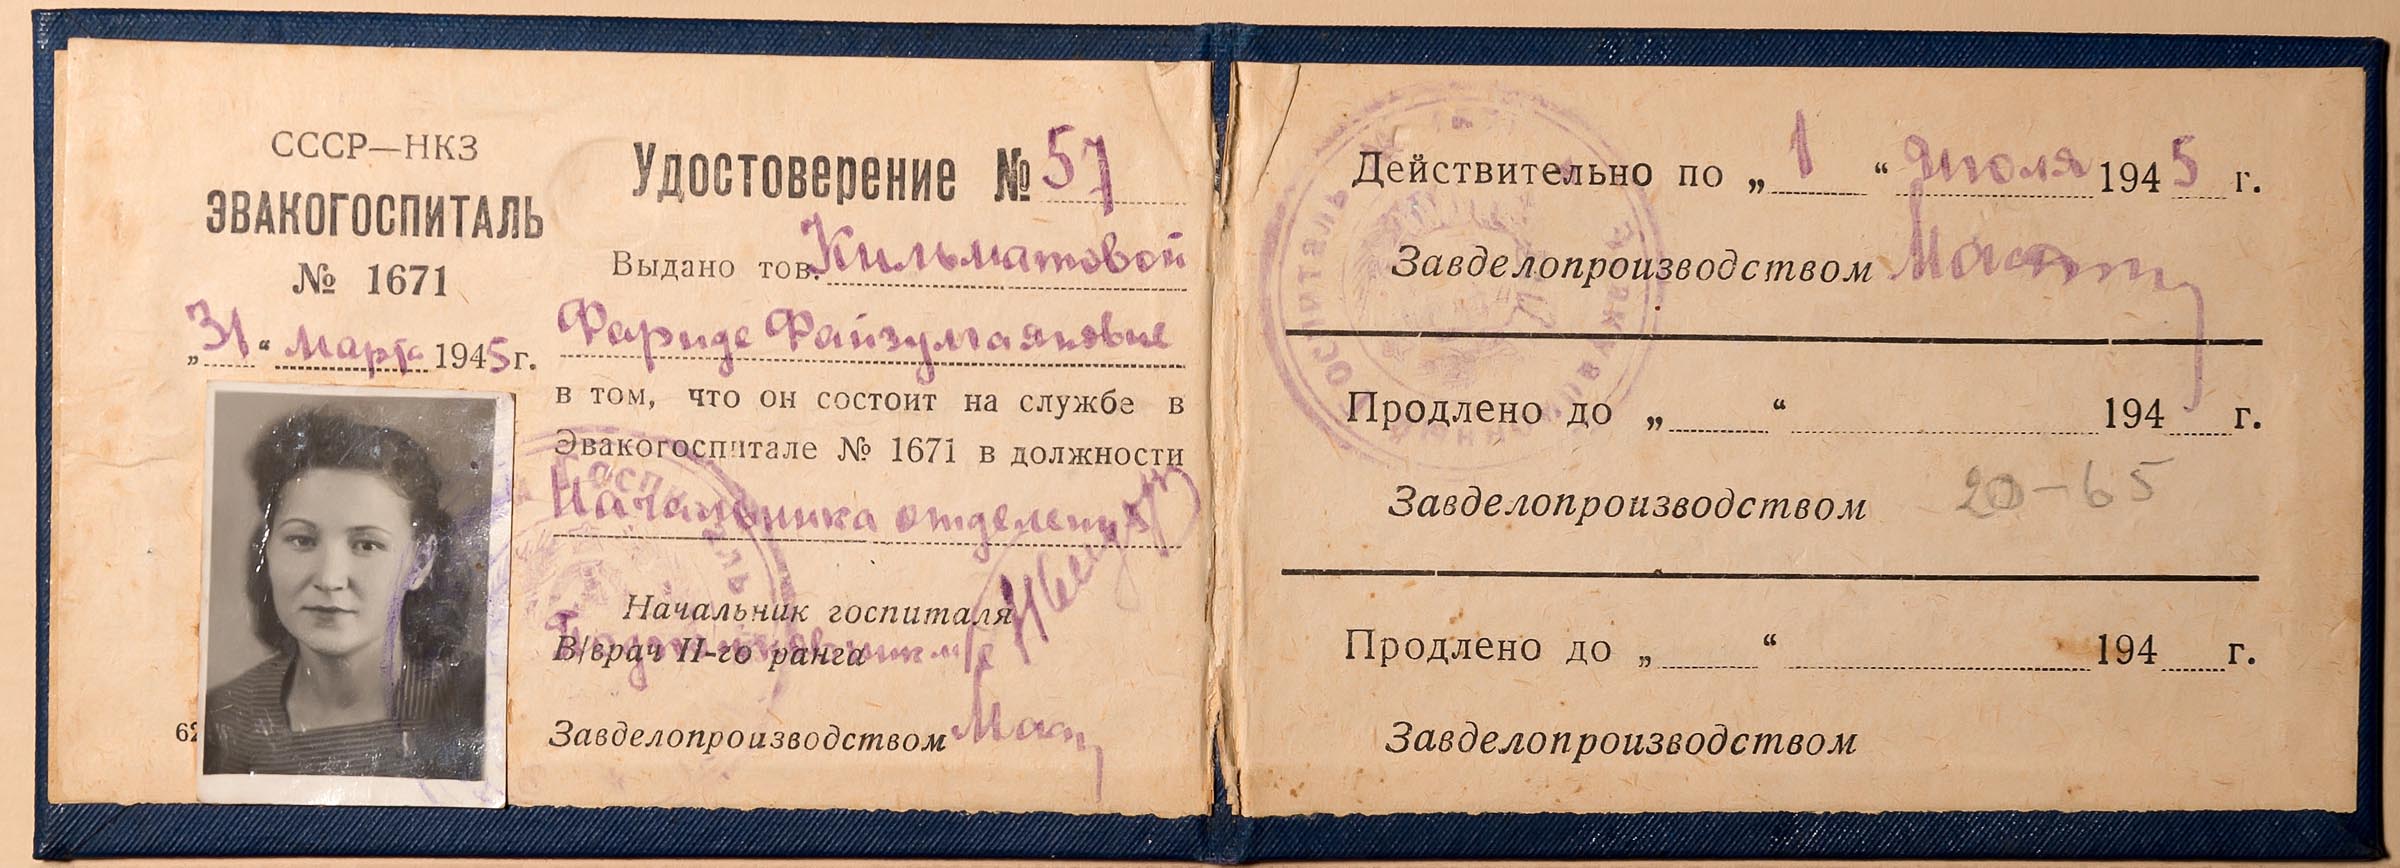 СССР—НКЗ
ЭВАКОГОСПИТАЛЬ
№ 1671
„31“ марта 1945 г.
62
Удостоверение № 57
Выдано тов. Кильматовой
Фариде Файзулгаяновне
в том, что он состоит на службе в
Эвакогоспитале № 1671 в должности
Начальника отделения
Начальник госпиталя
В/врач II-го ранга
Подполковник м/с
Завделопроизводством
Действительно по „1“ Июля 1945 г.
Завделопроизводством
Продлено до „ “ 194 г.
20-65
Завделопроизводством
Продлено до „ “ 194 г.
Завделопроизводством
госпиталь